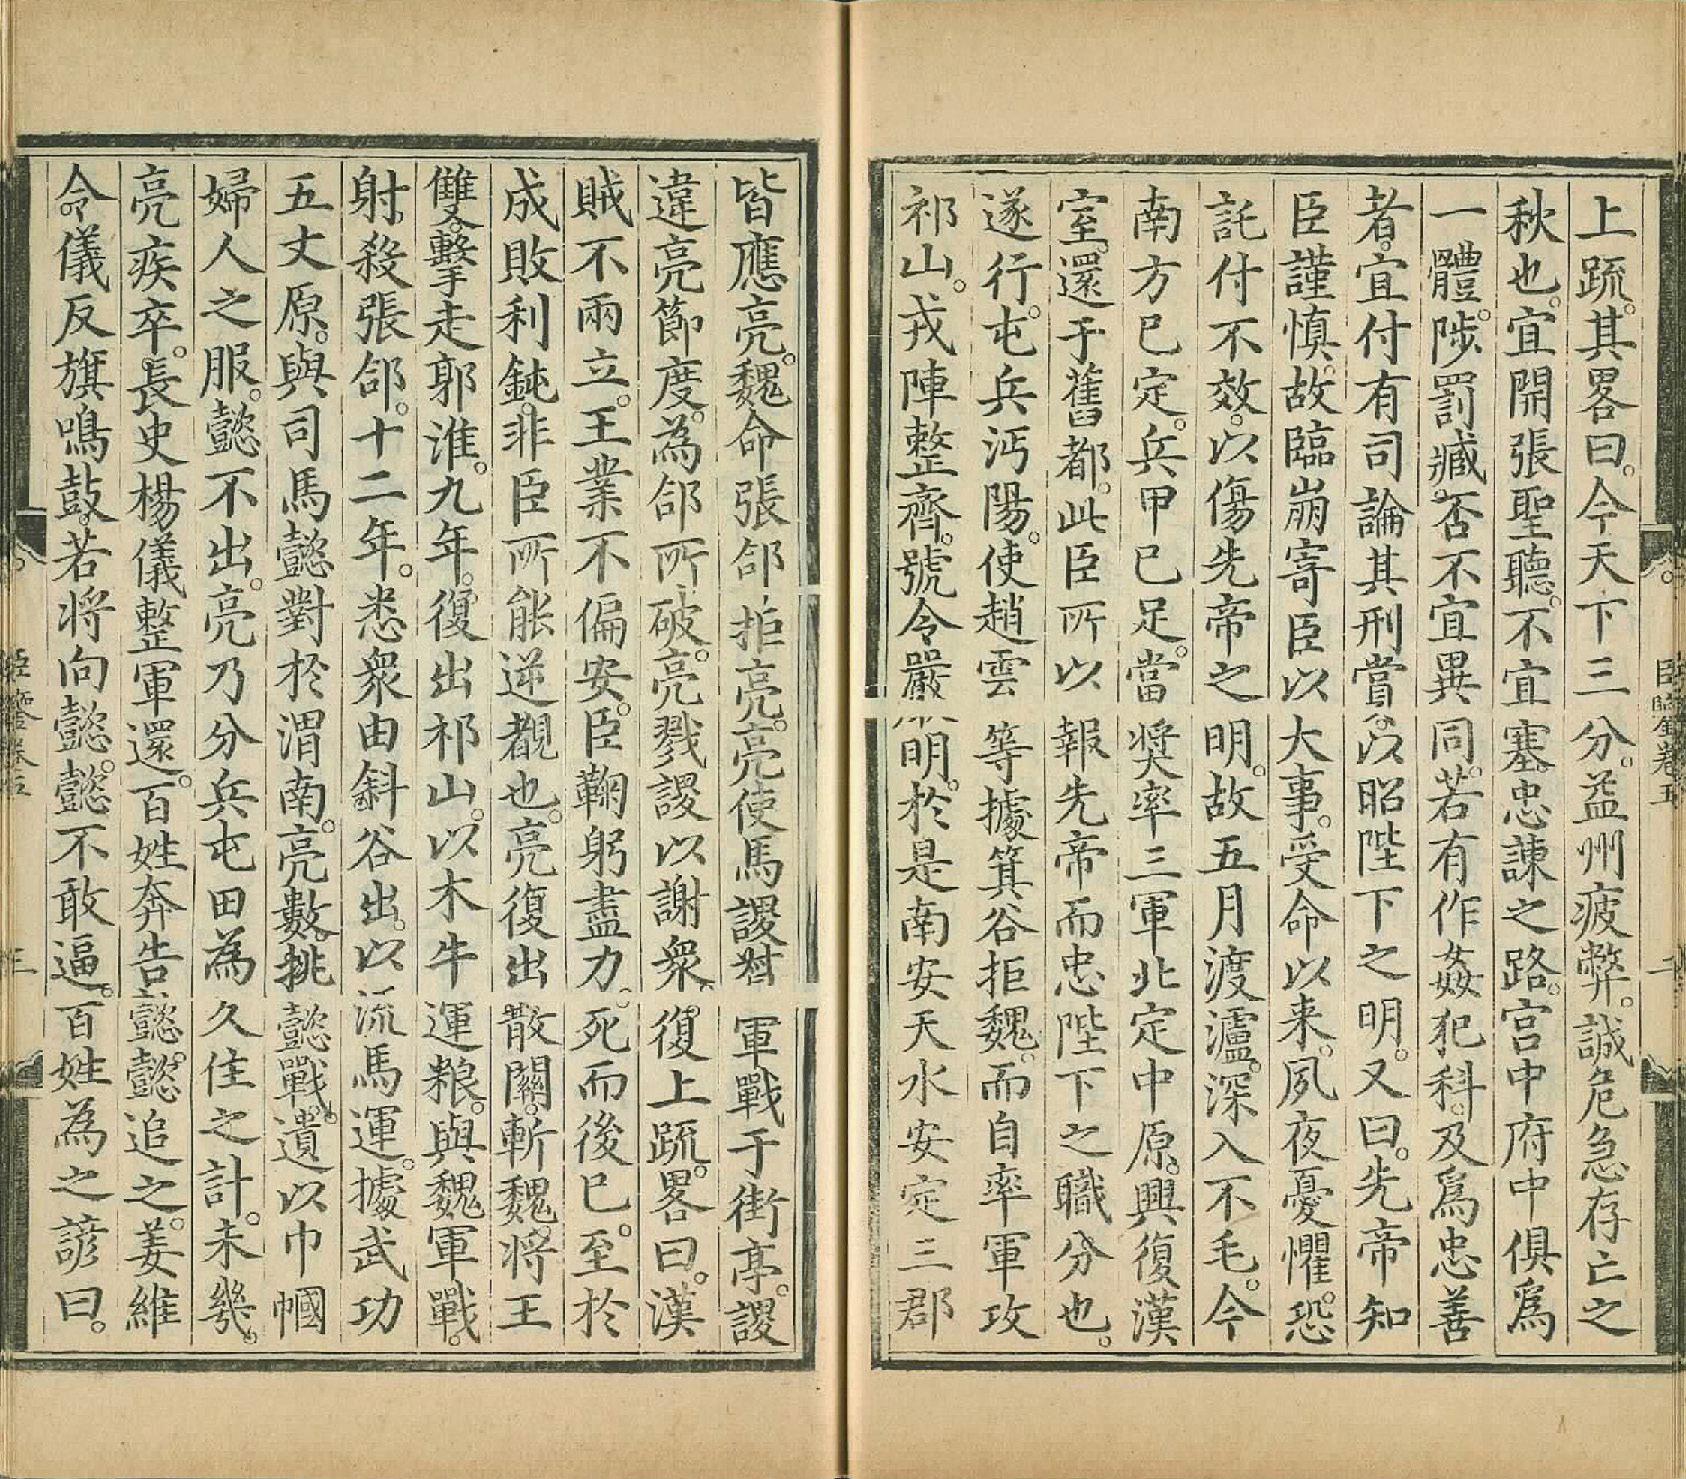 上疏。其畧曰。今天下三分。益州疲弊。誠危急存亡之
秋也。宜開張聖聽。不宜塞忠諫之路。宮中府中俱爲
一體。陟罰臧否。不宜異同。若有作姦犯科。及爲忠善
者。宜付有司論其刑賞。以昭陛下之明。又曰。先帝知
臣謹慎。故臨崩寄臣以大事。受命以来。夙夜憂懼。恐
託付不效。以傷先帝之明。故五月渡瀘。深入不毛。今
南方已定。兵甲已足。當奬率三軍北定中原。興復漢
室。還于舊都。此臣所以報先帝而忠陛下之職分也。
遂行。屯兵沔陽。使趙雲等據箕谷拒魏。而自率軍攻
祁山。戎陣整齊。號令嚴明。於是南安天水安定三郡
臣鑒卷五
皆應亮。魏命張郃拒亮。亮使馬謖督軍戰于街亭。謖
違亮節度。為郃所破。亮戮謖以謝衆。復上疏。畧曰。漢
賊不兩立。王業不偏安。臣鞠躬盡力。死而後已。至於
成敗利鈍。非臣所能逆覩也。亮復出散關。斬魏將王
雙。又擊走郭淮。九年。復出祁山。以木牛運粮。與魏軍戰。
射殺張郃。十二年。悉衆由斜谷出。以流馬運。據武功
五丈原。與司馬懿對於渭南。亮數挑懿戰。遺以巾幗
婦人之服。懿不出。亮乃分兵屯田為久住之計。未幾。
亮疾卒。長史楊儀整軍還。百姓奔告懿。懿追之。姜維
令儀反旗鳴鼓。若将向懿。懿不敢逼。百姓為之諺曰。